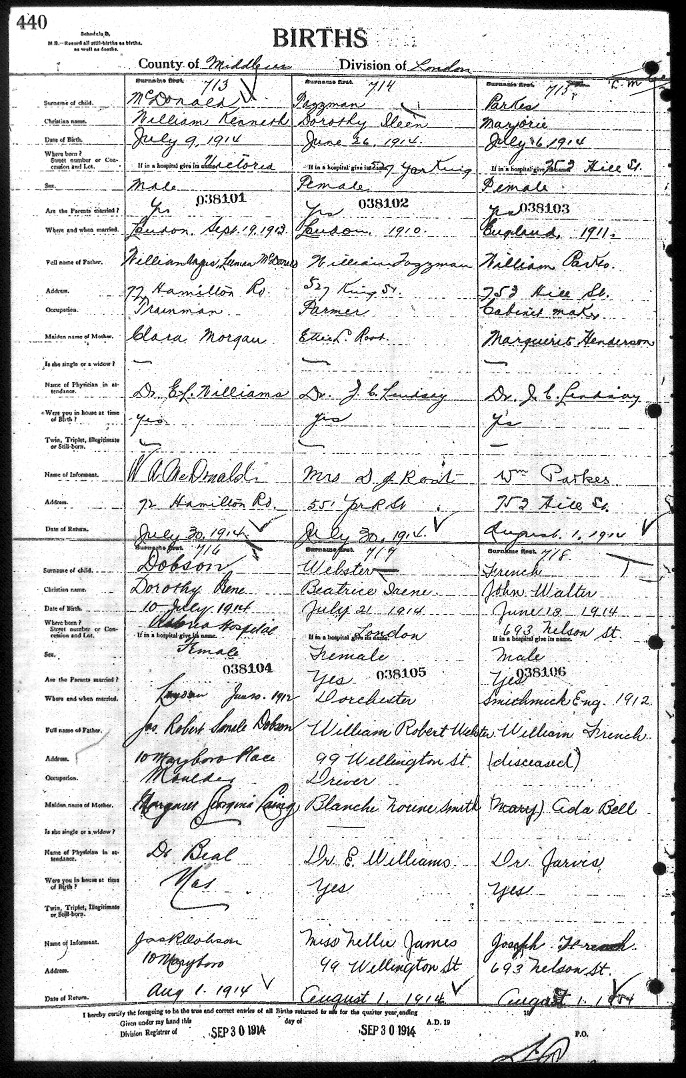 440
Schedule B.
N.B.—Record all still-births as births,
as well as deaths.
BIRTHS
County of Middlesex Division of London
Surname first. 713 Surname first. 714 Surname first. 715
Surname of child. McDonald Parkes
Christian name. William Kenneth Dorothy Ileen Marjorie
Date of Birth. July 9, 1914 June 26, 1914. July 16 1914
Where born? Street number or Concession and Lot. If in a hospital give its name. Victoria If in a hospital give its name. If in a hospital give its name. 752 Hill St.
Sex. Male Female. Female
038101 038102 038103
Are the Parents married? Yes Yes Yes
Where and when married. London. Sept. 19. 1913. London. 1910. England, 1911.
Full name of Father. William William William Parkes.
Address. 72 Hamilton Rd. 527 King St. 752 Hill St.
Occupation. Trainman Farmer Cabinet maker
Maiden name of Mother. Clara Morgan Root. Marguerite Henderson
Is she single or a widow? — — —
Name of Physician in attendance. Dr. E. L. Williams Dr. J. C. Lindsey Dr. J. C. Lindsay
Were you in house at time of Birth? yes. yes yes
Twin, Triplet, Illegitimate or Still-born. — — —
Name of Informant. W A McDonald Mrs D J Root Wm Parkes
Address. 72 Hamilton Rd. 551 St 752 Hill St.
Date of Return. July 30, 1914. July 30, 1914. August 1, 1914
Surname first. 716 Surname first. 717 Surname first. 718
Surname of child. Dobson Webster French
Christian name. Dorothy Irene Beatrice Irene. John Walter
Date of Birth. 10 July 1914 July 21 1914 June 13 1914
Where born? Street number or Concession and Lot. Victoria Hospital London 693 Nelson St.
If in a hospital give its name. If in a hospital give its name. If in a hospital give its name.
Sex. Female Female Male
038104 038105 038106
Are the Parents married? Yes Yes
Where and when married. London June 10. 1912 Dorchester Smithwick Eng. 1912.
Full name of Father. Jas. Robert Dobson William Robert Webster William French.
Address. 10 Maryboro Place 99 Wellington St. (diseased)
Occupation. Moulder Driver
Maiden name of Mother. Margaret Georgina Laing Blanche Smith (Mary) Ada Bell
Is she single or a widow? —
Name of Physician in attendance. Dr Beal Dr. E. Williams. Dr. Jarvis,
Were you in house at time of Birth? Yes Yes.
Twin, Triplet, Illegitimate or Still-born.
Name of Informant. Jas R Dobson Miss Nellie James Joseph French.
Address. 10 Maryboro 99 Wellington St 693 Nelson St.
Date of Return. Aug 1. 1914 August 1. 1914 August 1. 1914
I hereby certify the foregoing to be the true and correct entries of all Births returned to me for the quarter year, ending 19
Given under my hand this day of A.D. 19
Division Registrar of SEP 30 1914 SEP 30 1914 P.O.